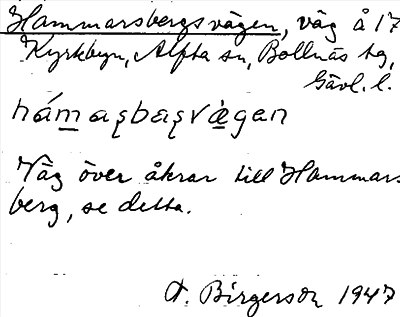 Hammarsbergsvägen, väg å 17
Kyrkbyn, Alfta sn, Bollnäs tg,
Gävl. l.
hámaʂbaʂvä̀gen
Väg över åkrar till Hammars-
berg, se detta.
A. Birgerson 1947